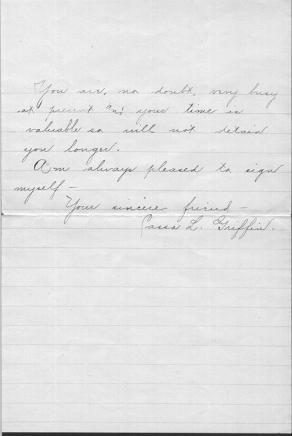 You are, no doubt, very busy
at present and your time is
valuable so will not detain
you longer.
Am always pleased to sign
myself -
Your sincere friend -
Cassa L. Griffin.